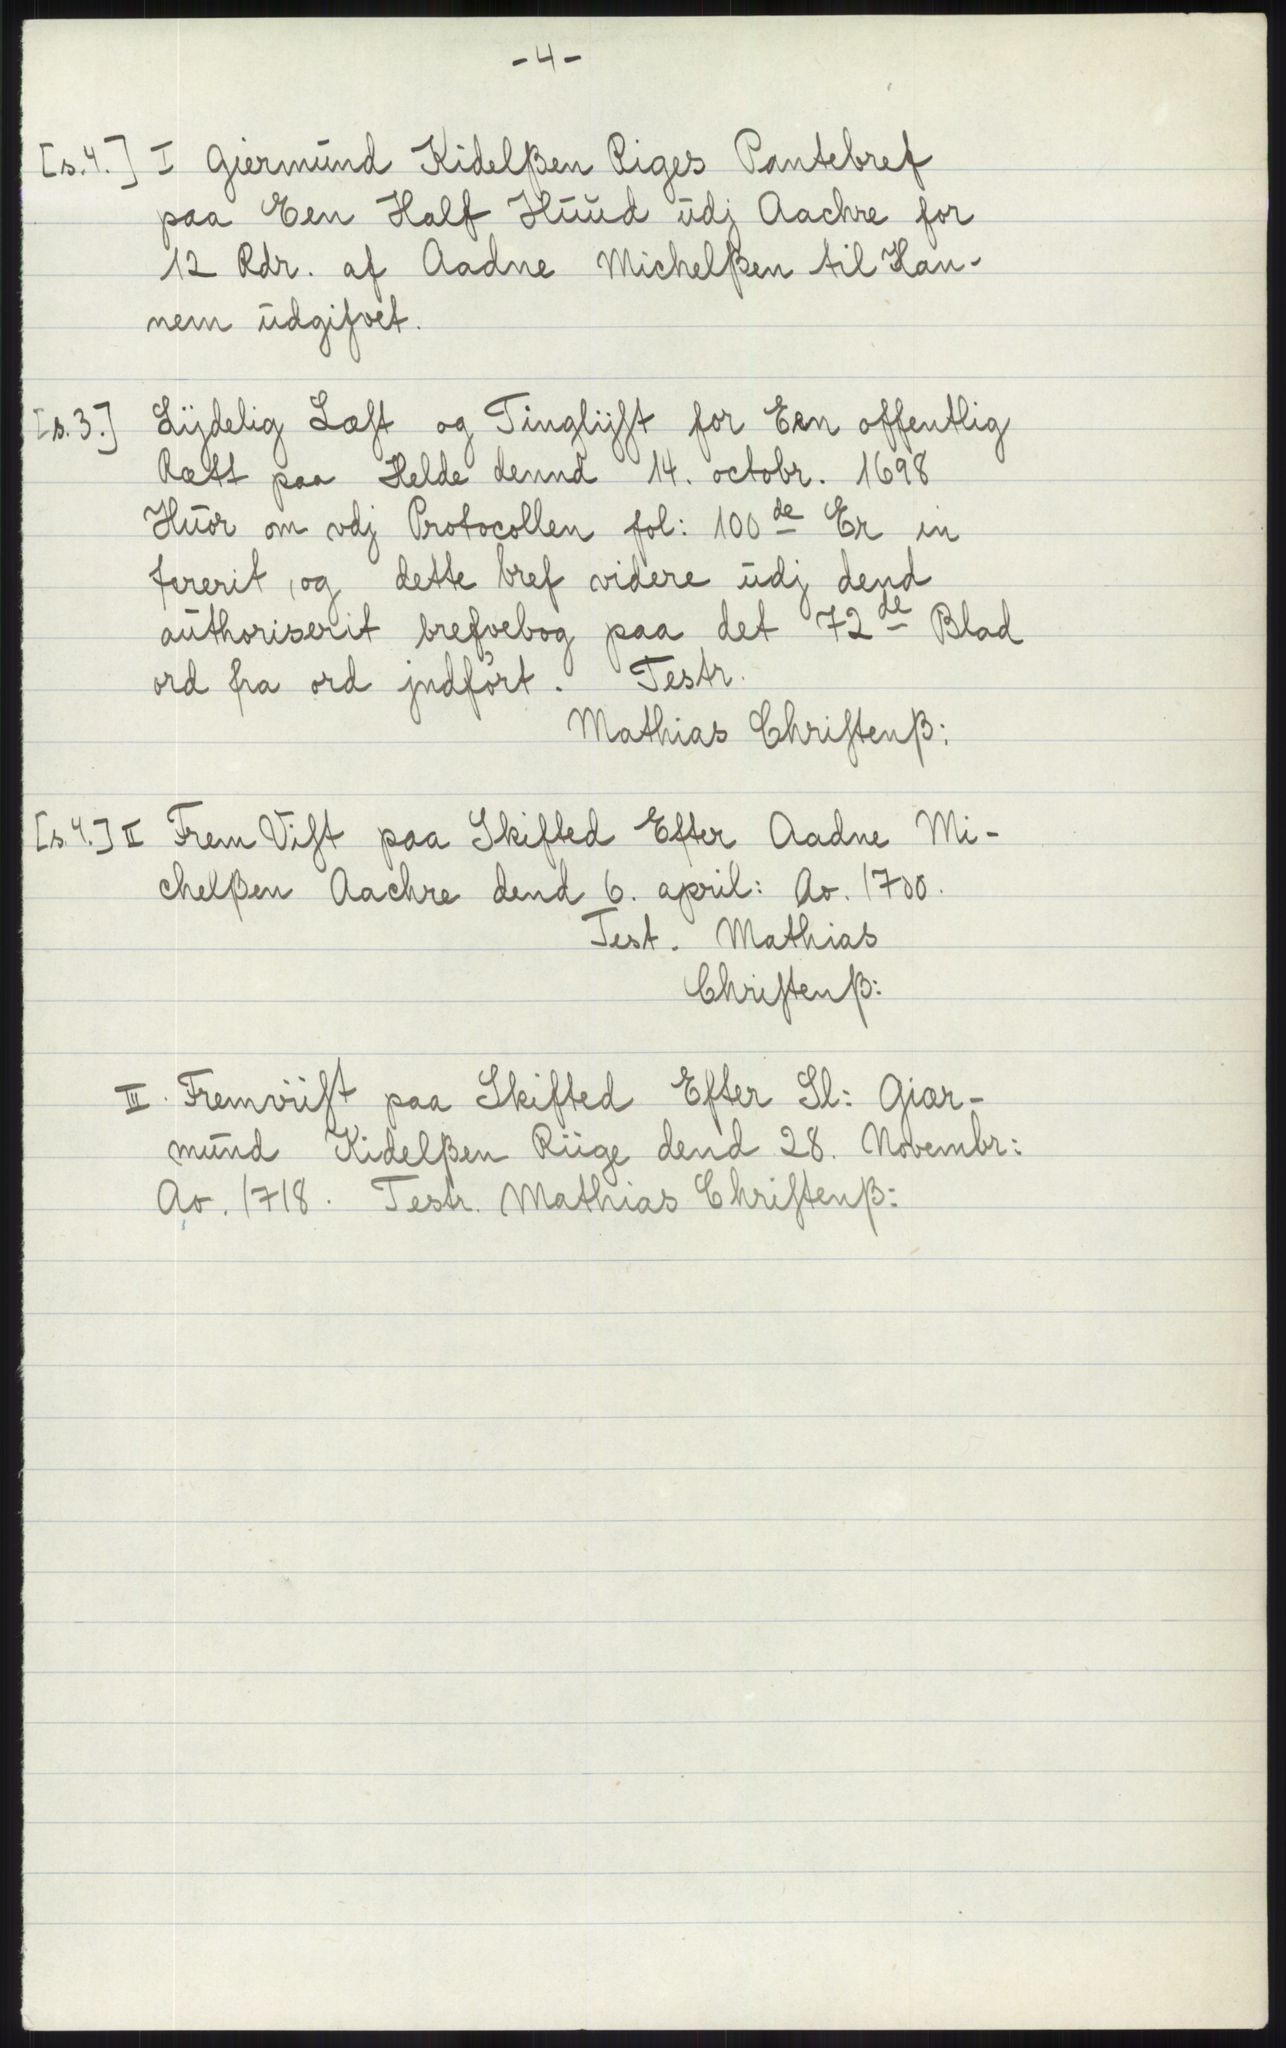 -4-
[s.4.] I Giermŭnd Kidelßen Riges Pantebref
paa Een Half Hŭŭd ŭdj Aachre for
12 Rdr. af Aadne Michelßen til Han-
nem ŭdgifvet.
[s.3.] Lÿdelig Læst og Tinglÿst for Een offentlig
Rætt paa Helde dennd 14. octobr. 1698
Hŭor om vdj Protocollen fol: 100de Er in
fererit, og dette bref videre ŭdj dend
aŭthoriserit brefvebog paa det 72de Blad
ord fra ord jndført. Testr.
Mathias Christenß:
[s.4.] II Frem Vist paa Skifted Efter Aadne Mi-
chelßen Aachre dend 6. april: Ao. 1700.
Test. Mathias
Christenß:
III. Fremviist paa Skifted Efter Sl: Giær-
mŭnd Kidelßen Riige dend 28. Novembr:
Ao. 1718. Testr. Mathias Christenß: